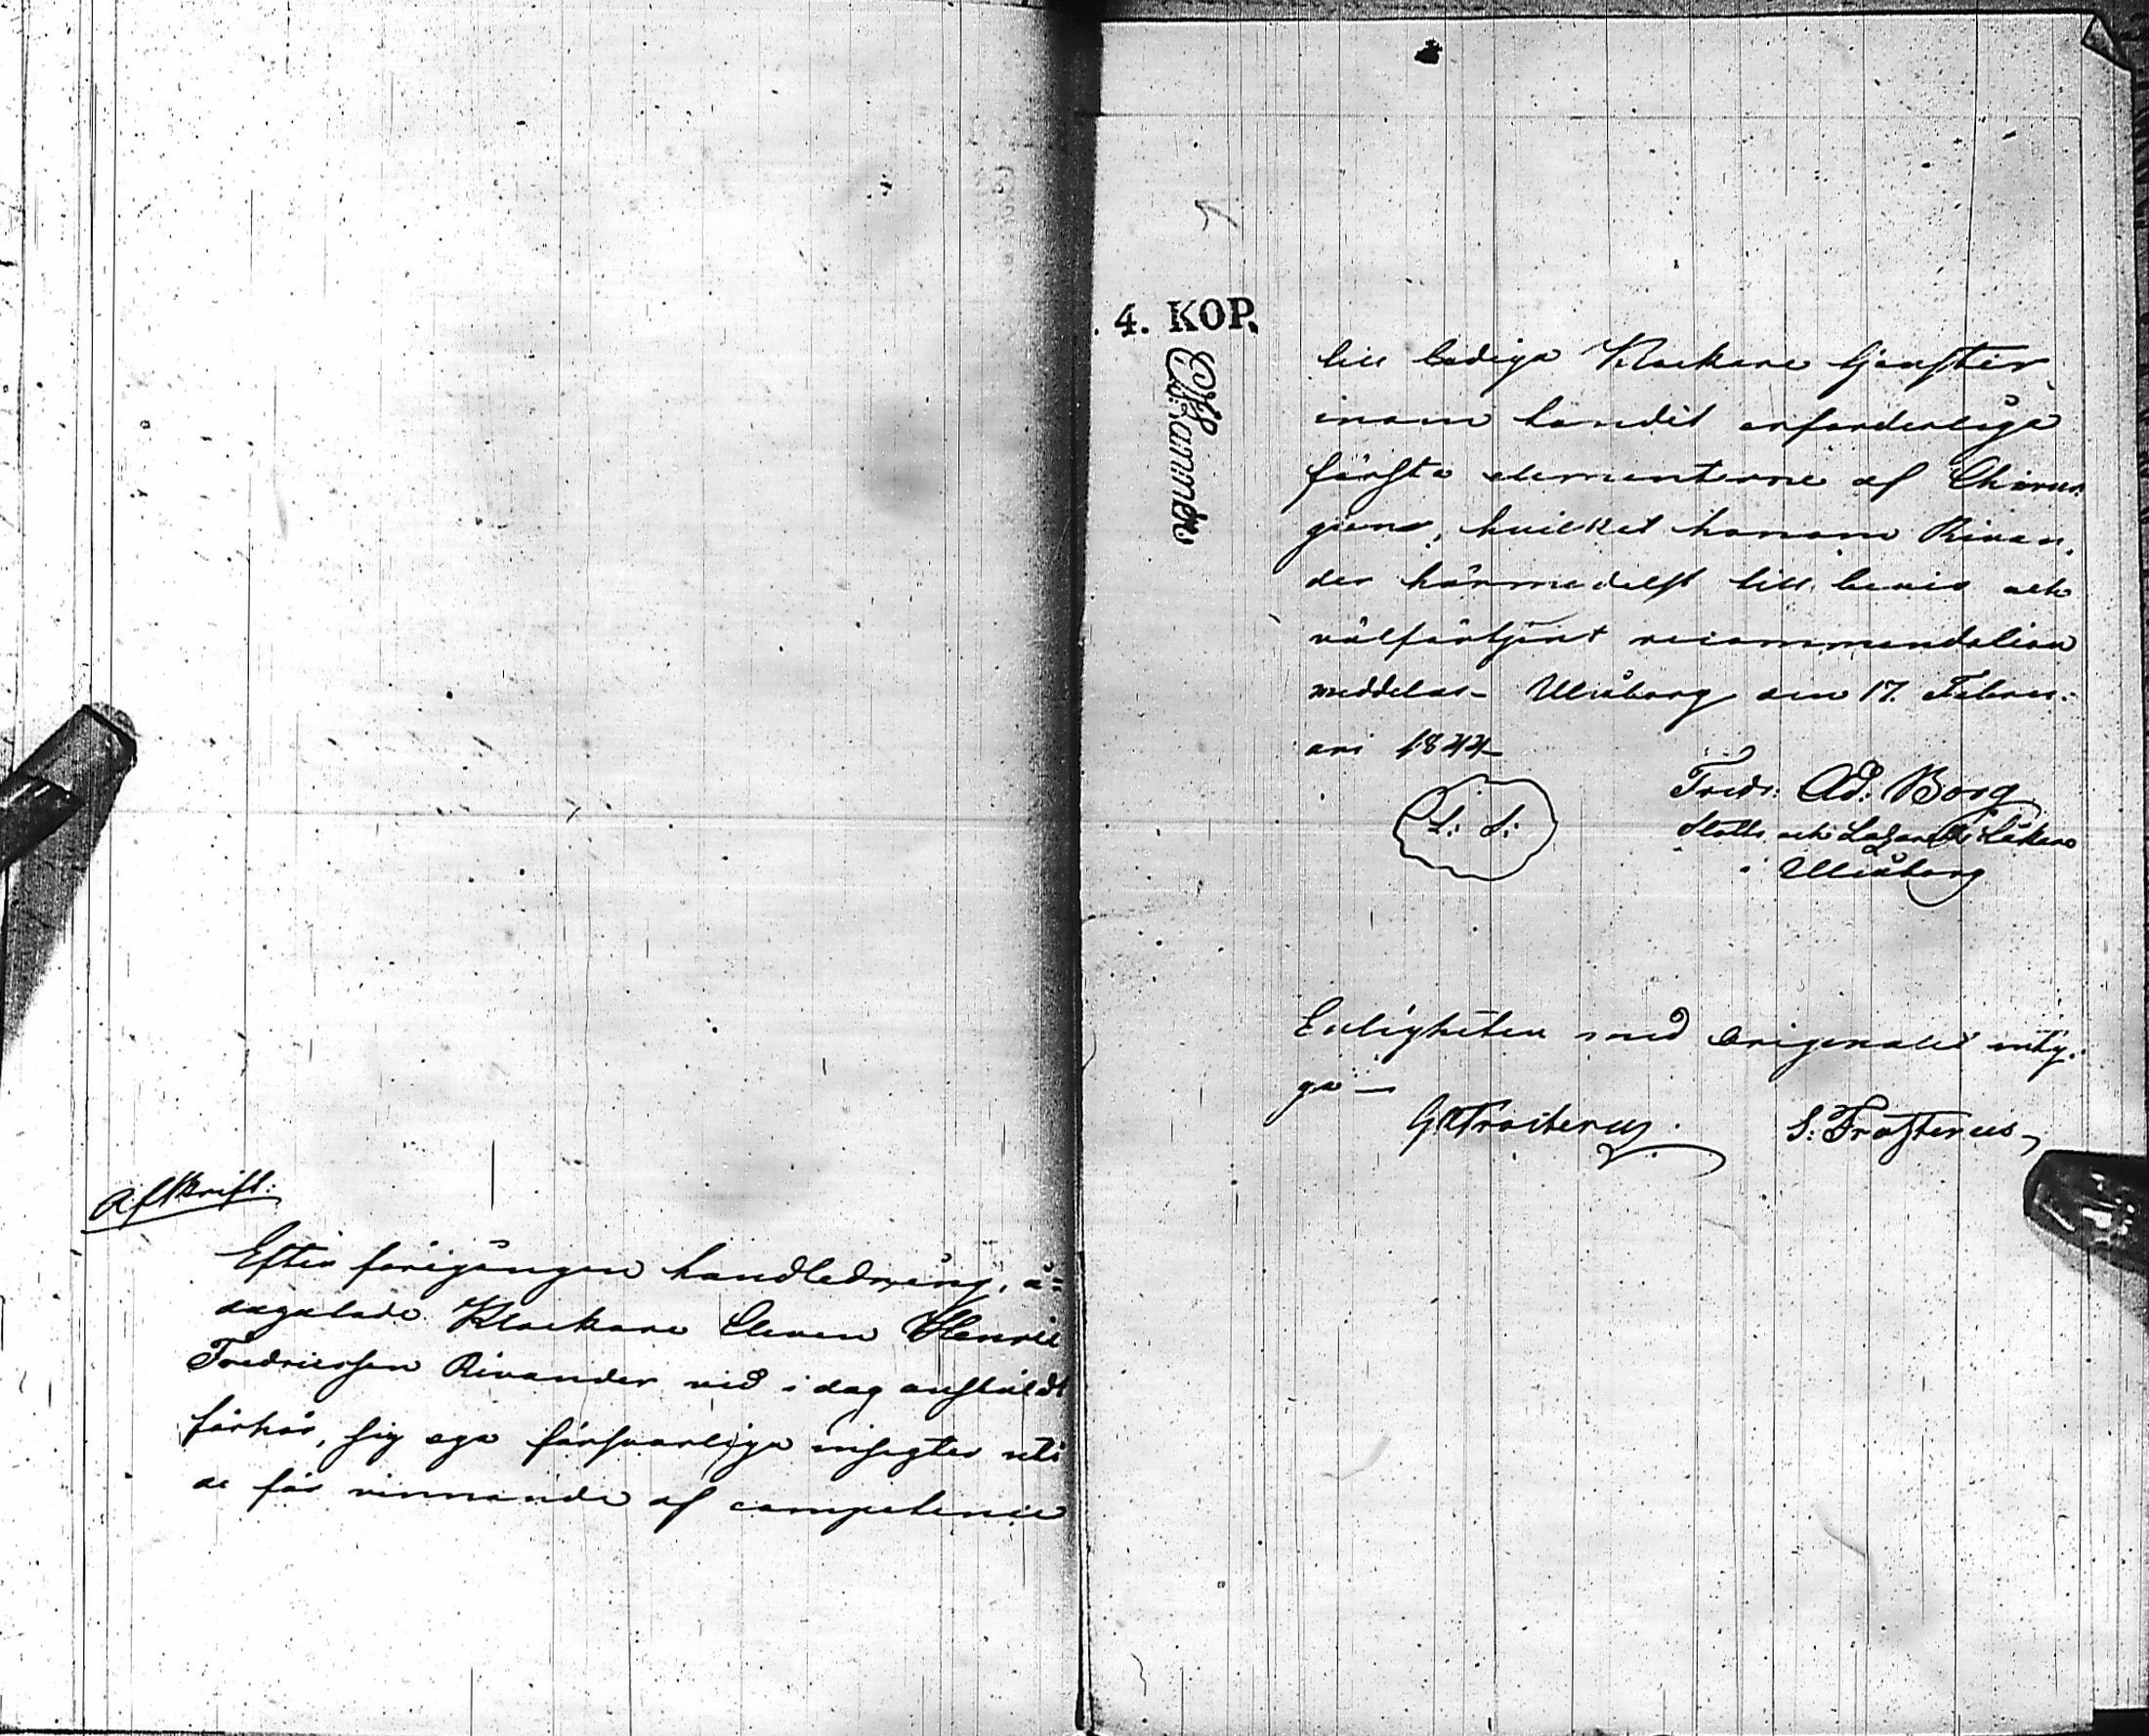 Afskrift:
Efter föregången handledning, å=
dagalade Klockare Eleven Henric
Fredricsson Rivander vid i dag anstäldt
förhör, sig ega försvarliga insigter uti
de för vinnande af competence
4. KOP.
till lediga Klockare tjenster
inom landet erforderliga
första elementerne af Chirur-
gien, hvilket honom Rivan-
der härmedelst till bevis och
välförtjent recommendation
meddelas – Uleåborg den 17. Febru-
ari 1844
L: S:
Fredr: Ad: Borg
Slotts och Lazaretts Läkare
i Uleåborg
Enligheten med Originalet inty-
ga –
Frosterus.
S: Frosterus